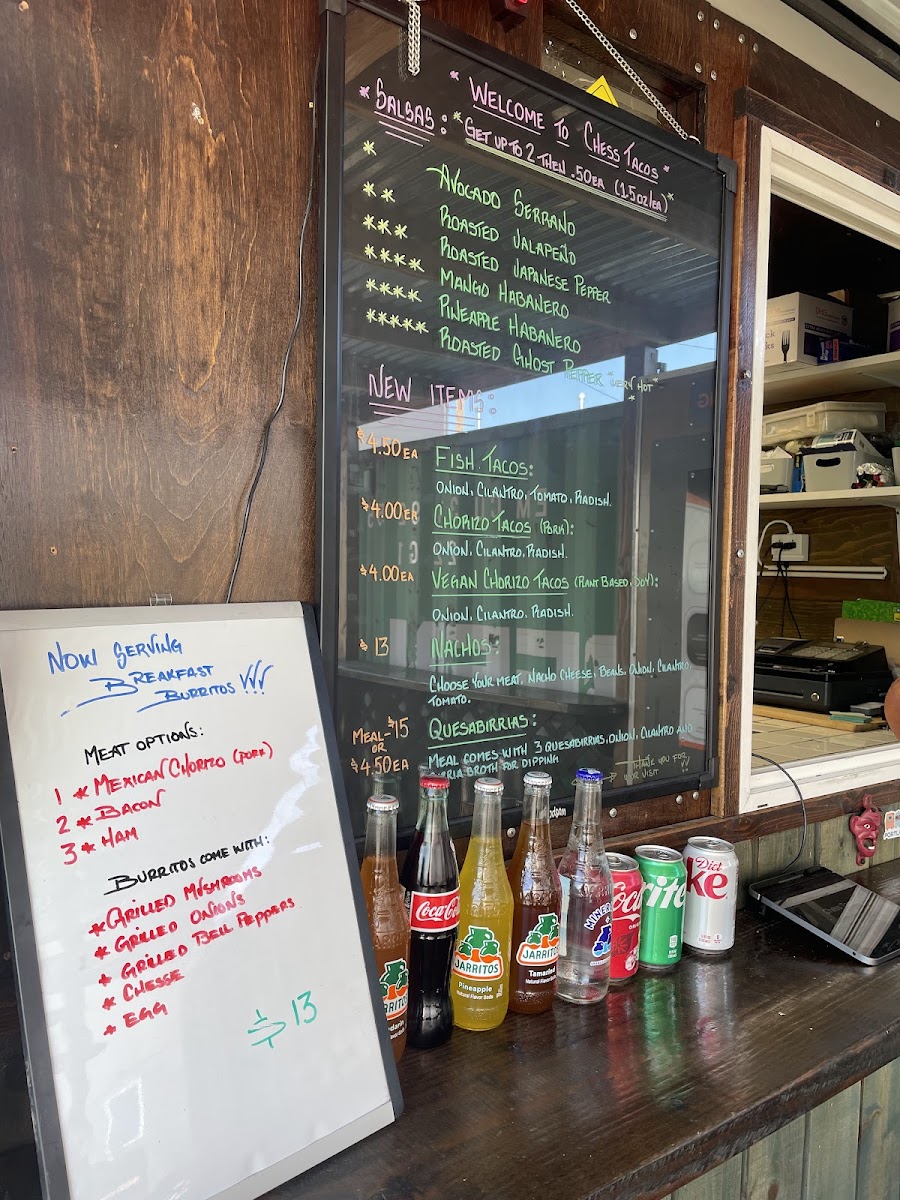 * WELCOME TO CHESS TACOS *
* SALSAS: * GET UP TO 2 THEN .50EA (1.5OZ/EA) *
* AVOCADO SERRANO
** ROASTED JALAPEÑO
*** ROASTED JAPANESE PEPPER
**** MANGO HABANERO
**** PINEAPPLE HABANERO
***** ROASTED GHOST PEPPER *VERY HOT*
NEW ITEMS:
$4.50EA FISH TACOS:
ONION, CILANTRO, TOMATO, RADISH.
$4.00EA CHORIZO TACOS (PORK):
ONION, CILANTRO, RADISH.
$4.00EA VEGAN CHORIZO TACOS (PLANT BASED, SOY):
ONION, CILANTRO, RADISH.
$13 NACHOS:
CHOOSE YOUR MEAT, NACHO CHEESE, BEANS, ONION, CILANTRO,
TOMATO.
MEAL-$15 QUESABIRRIAS:
OR MEAL COMES WITH 3 QUESABIRRIAS, ONION, CILANTRO AND
$4.50EA BROTH FOR DIPPING
THANK YOU FOR
YOUR VISIT !!
NOW SERVING
BREAKFAST
BURRITOS
MEAT OPTIONS:
1 * MEXICAN CHORIZO (PORK)
2 * BACON
3 * HAM
BURRITOS COME WITH:
* GRILLED MUSHROOMS
* GRILLED ONIONS
* GRILLED BELL PEPPERS
* CHEESE
* EGG
$13
Coca-Cola
JARRITOS
Pineapple
Natural Flavor Soda
JARRITOS
Tamarind
Natural Flavor Soda
MINER
Coca
rite
Diet
ke